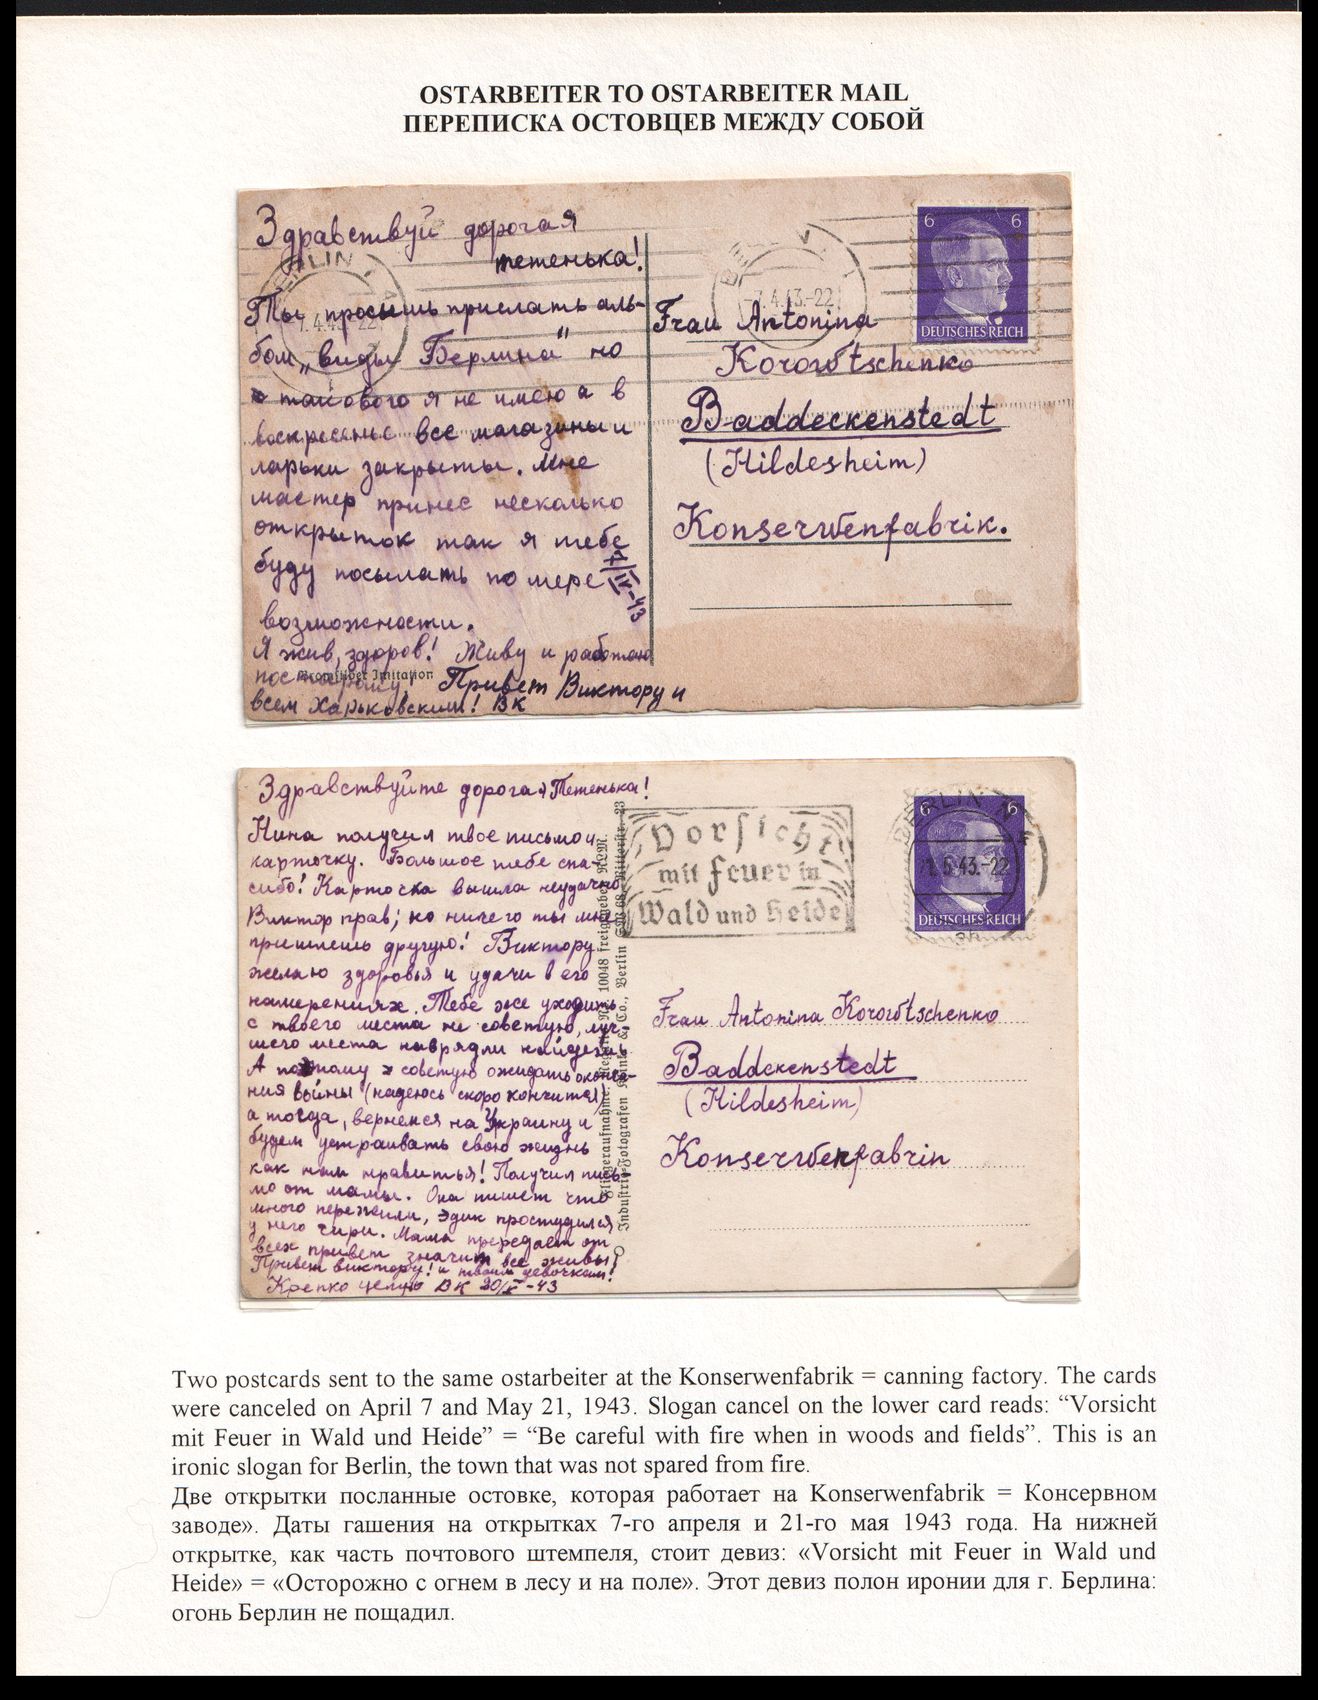 OSTARBEITER TO OSTARBEITER MAIL
ПЕРЕПИСКА ОСТОВЦЕВ МЕЖДУ СОБОЙ
Здравствуй дорогая
тетенька!
Ты просишь прислать аль-
бом „виды Берлина" но
такового я не имею а в
воскресенье все магазины и
ларьки закрыты. Мне
мастер принес несколько
открыток так я тебе
буду посылать по мере
возможности.
7/IV-43
Я жив, здоров! Живу и работаю
по старому. Привет Виктору и
всем Харьковским! ВК
Bromsilber Imitation
BERLIN
7.4.43.-22
6 6
DEUTSCHES REICH
Frau Antonina
Korowtschenko
Baddeckenstedt
(Hildesheim)
Konserwenfabrik.
Здравствуйте дорогая Тетенька!
Нина получил твое письмо и
карточку. Большое тебе спа-
сибо! Карточка вышла неудачно
Виктор прав; но ничего ты мне
пришлешь другую! Виктору
желаю здоровья и удачи в его
намерениях. Тебе же уходить
с твоего места не советую, луч-
шего места наврядли найдешь
А потому советую ожидать оконча-
ния войны (надеюсь скоро кончится)
а тогда, вернемся на Украину и
будем устраивать свою жизнь
как нам нравиться! Получил пись-
мо от мамы. Она пишет что
много пережили, Эдик простудился
у него чири. Мама передает от
всех привет значит все живы!
Привет виктору! и твоим девочкам!
Крепко целую ВК 20/V-43
10048 freigegeben RLM.
Industrie-Fotografen Klinke & Co., Berlin SW 68, Ritterstr. 23
Vorsicht
mit Feuer in
Wald und Heide
BERLIN N 4
21.5.43.-22
6 6
DEUTSCHES REICH
Frau Antonina Korowtschenko
Baddekenstedt
(Hildesheim)
Konserwenfabrin
Two postcards sent to the same ostarbeiter at the Konserwenfabrik = canning factory. The cards
were canceled on April 7 and May 21, 1943. Slogan cancel on the lower card reads: “Vorsicht
mit Feuer in Wald und Heide” = “Be careful with fire when in woods and fields”. This is an
ironic slogan for Berlin, the town that was not spared from fire.
Две открытки посланные остовке, которая работает на Konserwenfabrik = Консервном
заводе». Даты гашения на открытках 7-го апреля и 21-го мая 1943 года. На нижней
открытке, как часть почтового штемпеля, стоит девиз: «Vorsicht mit Feuer in Wald und
Heide» = «Осторожно с огнем в лесу и на поле». Этот девиз полон иронии для г. Берлина:
огонь Берлин не пощадил.